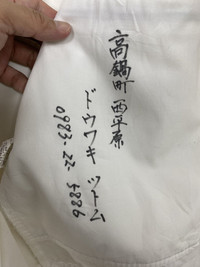 高鍋町 西平原
ドウワキ ツトム
0983-22-5886